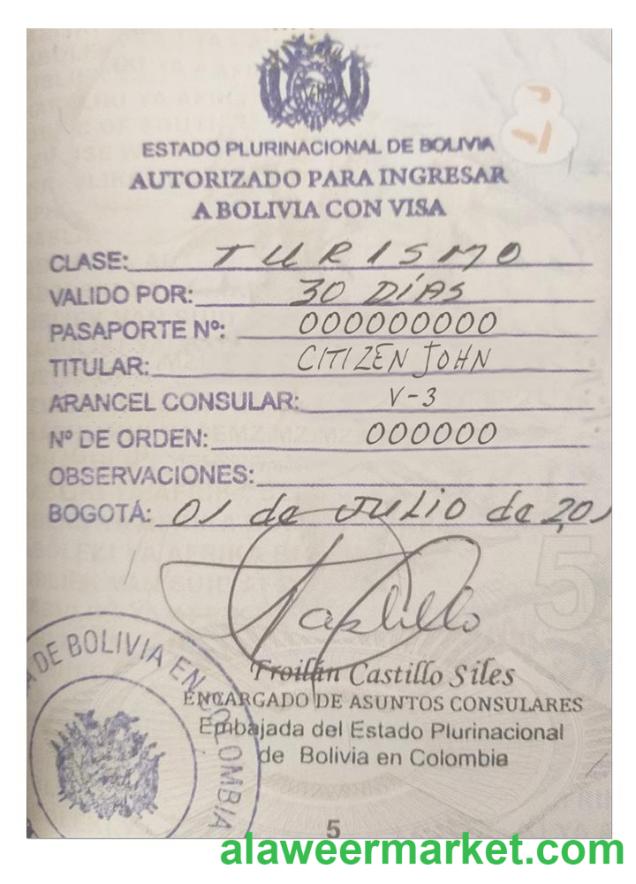 ESTADO PLURINACIONAL DE BOLIVIA
AUTORIZADO PARA INGRESAR
A BOLIVIA CON VISA
CLASE: TURISMO
VALIDO POR: 30 DÍAS
PASAPORTE Nº: 000000000
TITULAR: CITIZEN JOHN
ARANCEL CONSULAR: V-3
Nº DE ORDEN: 000000
OBSERVACIONES:
BOGOTÁ: 01 de JULIO de 201
Castillo
Froilán Castillo Siles
ENCARGADO DE ASUNTOS CONSULARES
Embajada del Estado Plurinacional
de Bolivia en Colombia
DE BOLIVIA EN COLOMBIA
5
5
alaweermarket.com